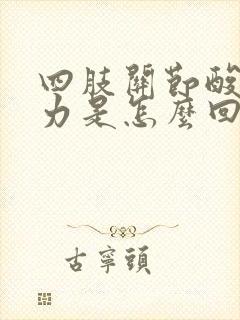 四肢關節酸
力是怎麼回
古寧頭